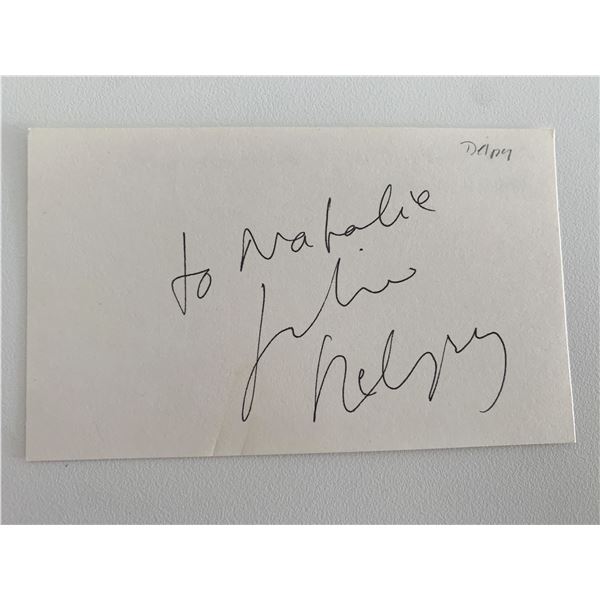 Delpy
to Natalie
Julie
Delpy